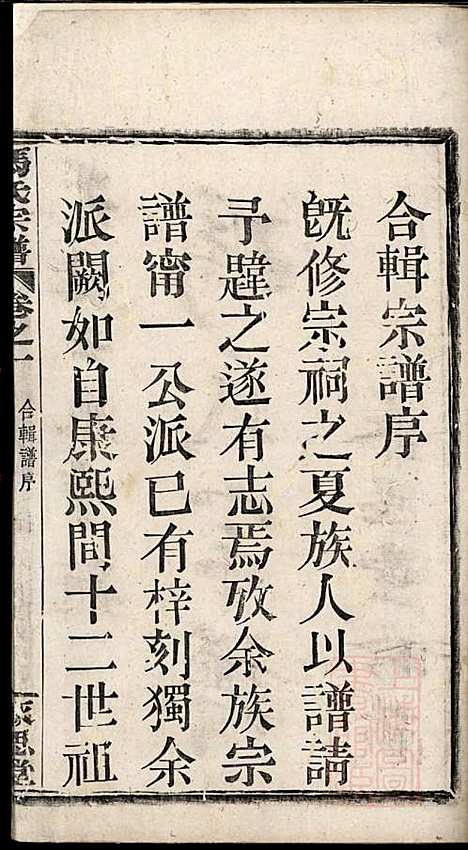 合輯宗譜序
既修宗祠之夏族人以譜請
予韙之遂有志焉攷余族宗
譜甯一公派已有梓刻獨余
派闕如自康熙間十二世祖
馮氏宗譜
卷之一
合輯譜序
思堂